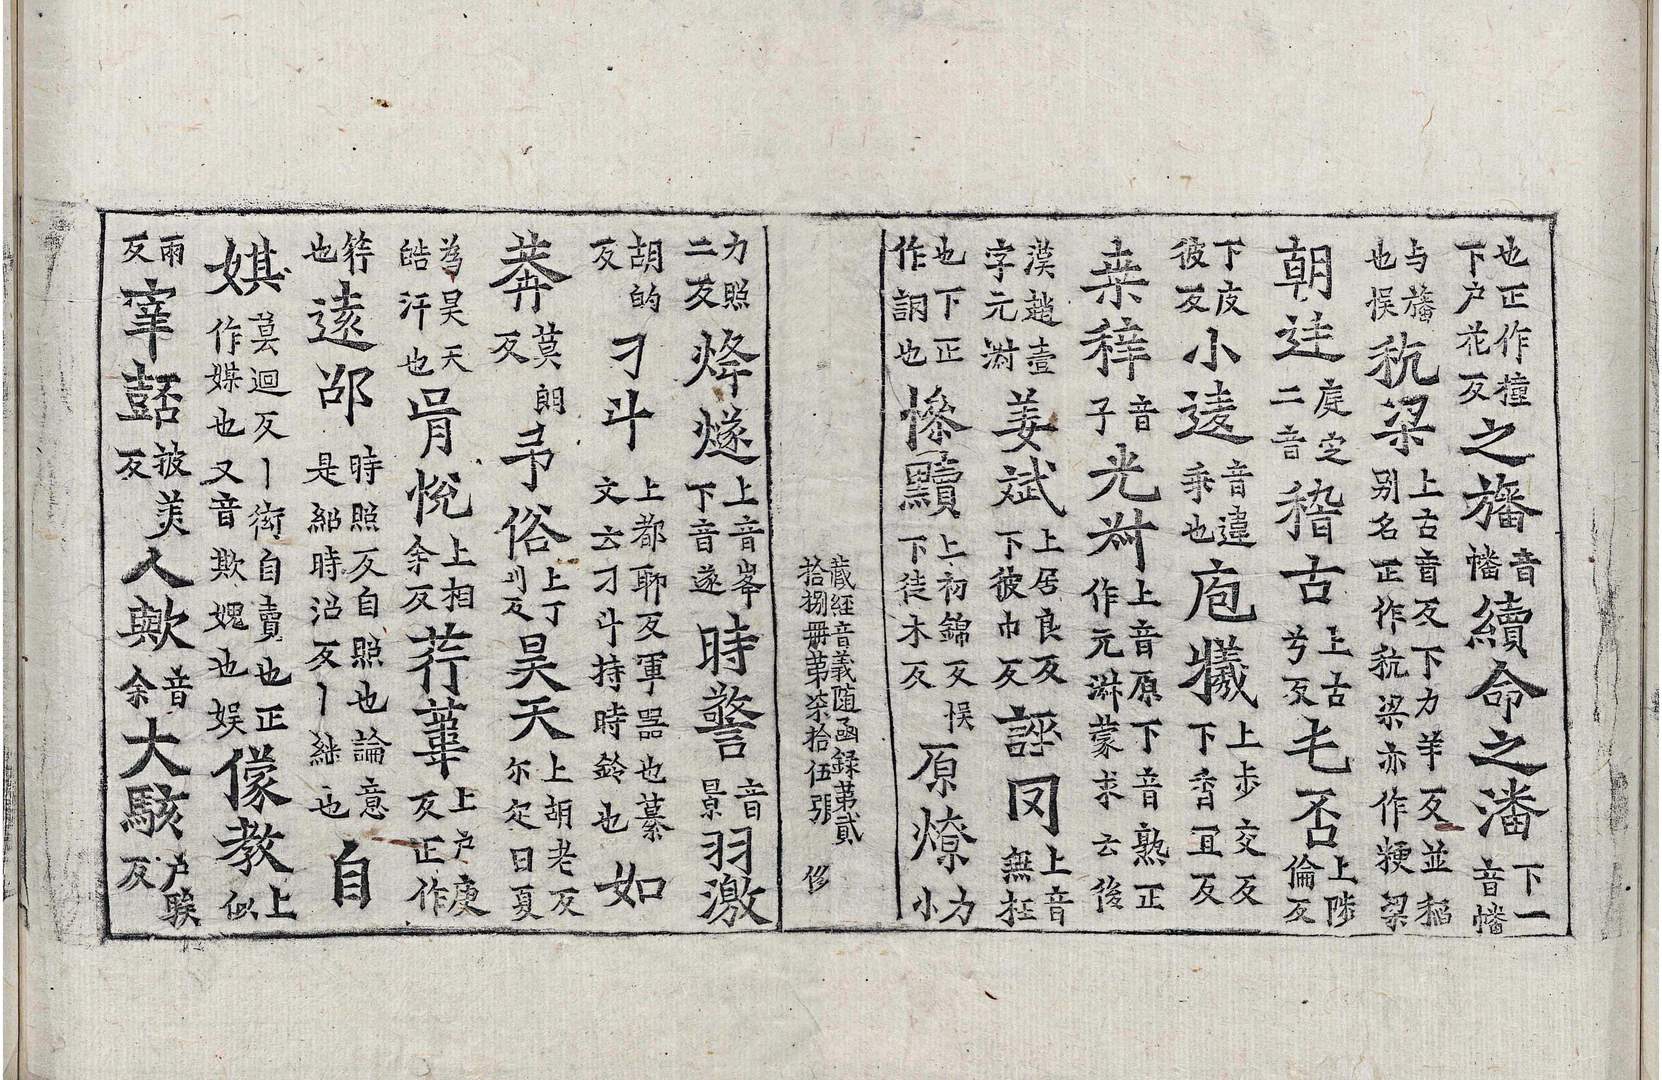 也正作撞下户花反之旛音幡續命之潘下一音幡
与旛也悮秔梁上古音反下力羊反並稲别名正作秔粱亦作粳粱
朝迋庭定二音稽古上古兮反毛否上陟倫反
下皮彼反小逺音違乘也庖犧上步交反下香宜反
桒稺音子光舛上音原下音熟正作元淋蒙求云後
漢趙壹字元淋姜斌上居良反下彼巾反誣罔上音無枉
也下正作詞也惨黷上初錦反下徒木反悮原燎力小
藏經音義随函録苐貳拾捌冊苐柒拾伍張 侈
力照二反烽燧上音峯下音遂時警音景羽激
胡的反刁斗上都聊反軍器也纂文云刁斗持時鈴也如
莾莫朗反弔俗上丁叫反昊天上胡老反尓疋曰夏
為昊天皓汗也悦上相余反荇葦上户庚反正作
荇也遠邵時照反自照也論意是紹時沼反丨継也自
媒莫迴反丨衒自賣也正作媒也又音欺媿也娱儌教上似
雨反宰嚭披美反人歟音余大駭户騃反